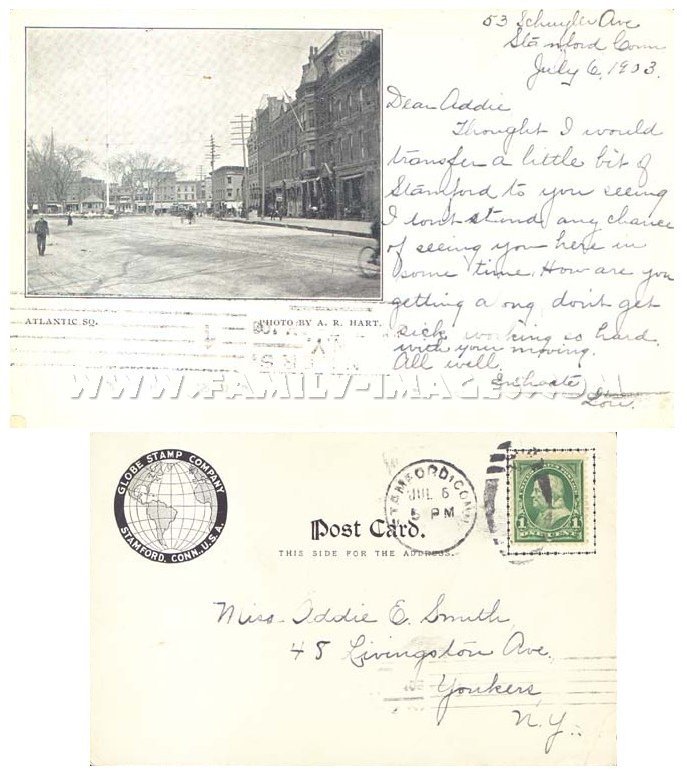 53 Schuyler Ave
Stamford Conn
July 6, 1903.
Dear Addie
Thought I would
transfer a little bit of
Stamford to you seeing
I don't stand any chance
of seeing you here in
some time. How are you
getting along don't get
sick working so hard
with your moving.
All well.
Lou.
ATLANTIC SQ.
PHOTO BY A. R. HART.
WWW.FAMILY-IMAGES.COM
GLOBE STAMP COMPANY
STAMFORD, CONN., U.S.A.
STAMFORD, CONN.
JUL 6
5 PM
Post Card.
THIS SIDE FOR THE ADDRESS.
1
ONE CENT
1
Miss Addie E. Smith,
48 Livingston Ave.
Yonkers,
N.Y.